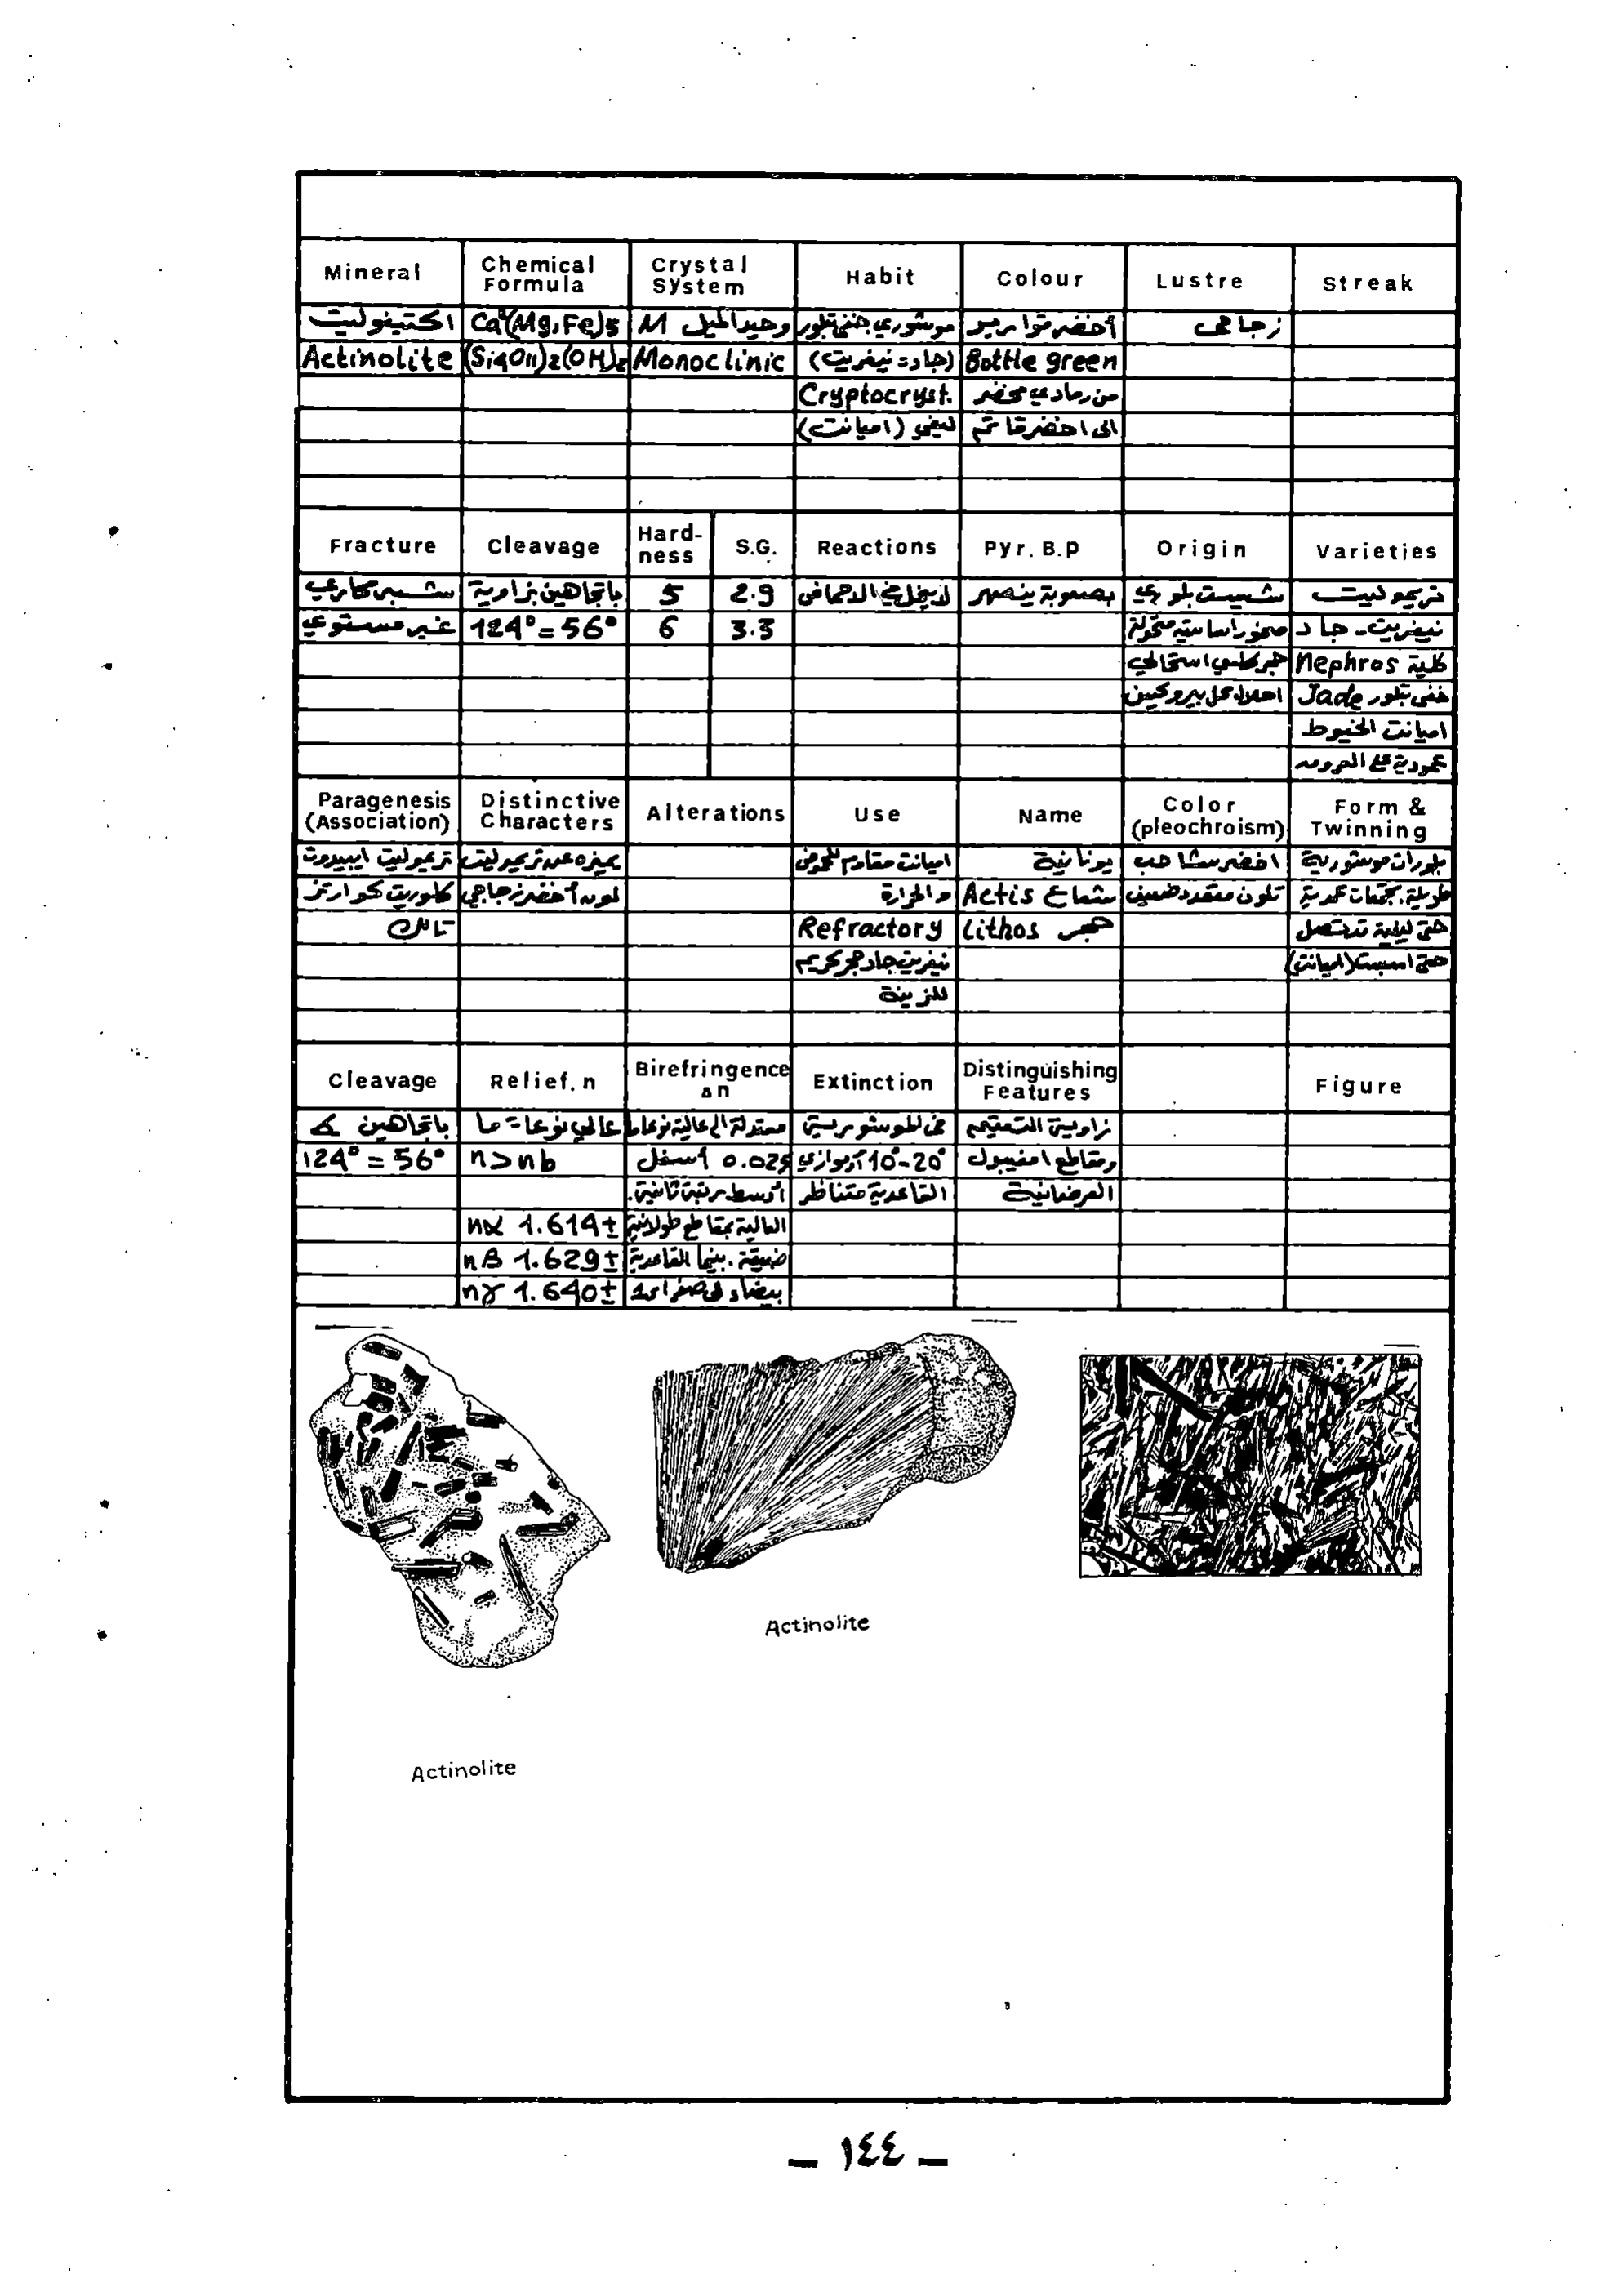 Mineral | Chemical Formula | Crystal System | Habit | Colour | Lustre | Streak
اكتينوليت | Ca2(Mg,Fe)5 | وحيد الميل M | موشوري خفي تبلور | أخضر قواريـ | زجاجي
Actinolite | (Si4O11)2(OH)2 | Monoclinic | (جاد = نيفريت) | Bottle green
Cryptocryst. | من رمادي مخضر
ليفي (اميانت) | الى اخضر قاتم
Fracture | Cleavage | Hardness | S.G. | Reactions | Pyr. B.p | Origin | Varieties
باتجاهين بزاوية | 5 | 2.9 | لا ينحل في الاحماض | بصعوبة ينصهر | شيست بلوري | تريموليت
غير مستوي | 124° = 56° | 6 | 3.3 | صخور اساسية متحولة | نيفريت - جاد
استحالي | كلية Nephros
احلال محل بيروكسين | خفي تبلور Jade
اميانت الخيوط
عمودية على
Paragenesis (Association) | Distinctive Characters | Alterations | Use | Name | Color (pleochroism) | Form & Twinning
تريموليت ابيدوت | يميزه عن تريموليت | اميانت مقاوم للحموض | يونانية | اخضر شاحب | بلورات موشورية
كلوريت كوارتز | لونه أخضر زجاجي | والحرارة | Actis شعاع | تلون متعدد ضعيف | طويلة. تجمعات عمدية
تالك | Refractory | Lithos حجر | حتى ليفية
نيفريت جاد حجر كريم | (اميانت)
للزينة
Cleavage | Relief. n | Birefringence Δn | Extinction | Distinguishing Features | Figure
باتجاهين ∡ | عالي نوعا ما | معتدلة الى عالية نوعا ما | في الموشورية | زاوية التعتيم
124° = 56° | n>nb | 0.025 أسفل | 10°-20° | ومقاطع امفيبول
أوسط رتبة ثانية. | القاعدية متناظر | العرضانية
nα 1.614± | العالية بمقاطع طولانية
nβ 1.629± | ضيقة. بينما القاعدية
nγ 1.640± | بيضاء
Actinolite
Actinolite
– ١٤٤ –